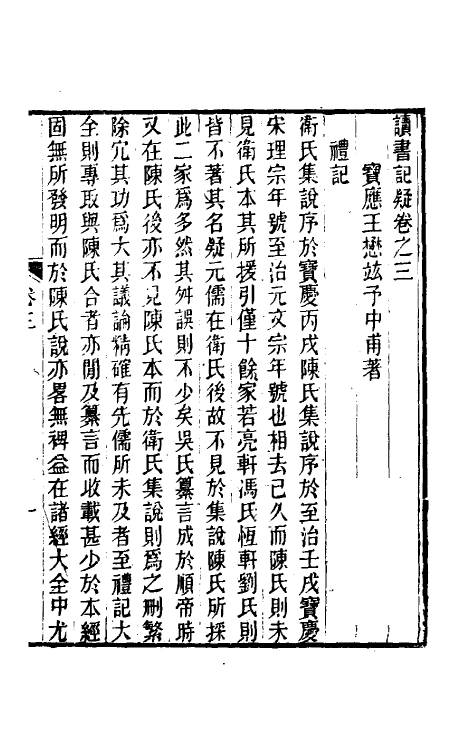 讀書記疑卷之三
寶應王懋竑予中甫著
禮記
衛氏集說序於寶慶丙戌陳氏集說序於至治壬戌寶慶
宋理宗年號至治元文宗年號也相去已久而陳氏則未
見衛氏本其所援引僅十餘家若亮軒馮氏恆軒劉氏則
皆不著其名疑元儒在衛氏後故不見於集說陳氏所採
此二家爲多然其舛誤則不少矣吳氏纂言成於順帝時
又在陳氏後亦不見陳氏本而於衛氏集說則爲之刪繁
除冗其功爲大其議論精確有先儒所未及者至禮記大
全則專取與陳氏合者亦閒及纂言而收載甚少於本經
固無所發明而於陳氏說亦畧無裨益在諸經大全中尤
卷三
一